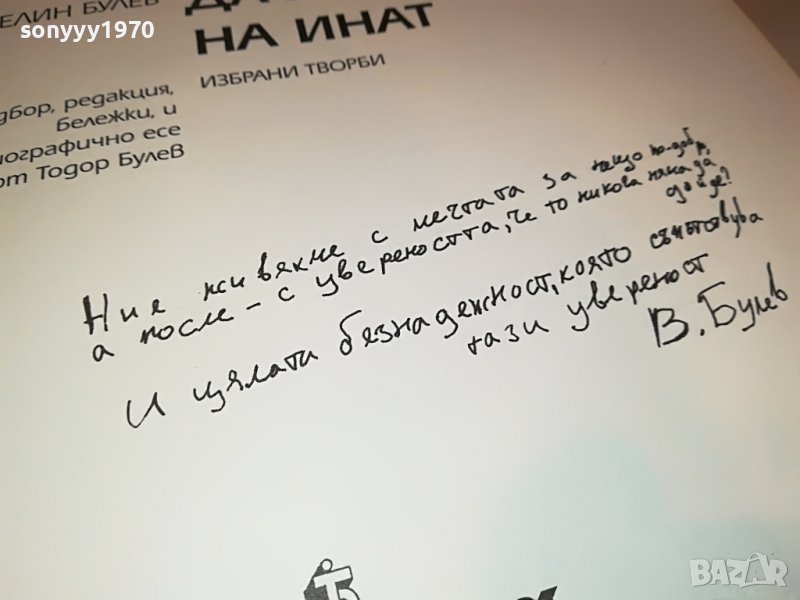 sonyyy1970
ЕЛИН БУЛЕВ
НА ИНАТ
ИЗБРАНИ ТВОРБИ
дбор, редакция,
бележки, и
иографично есе
от Тодор Булев
Ние живяхме с мечтата за нещо по-добро,
а после – с увереността, че то никога няма да
дойде?
И цялата безнадежност, която съпътствува
тази увереност
В. Булев
BAZAR